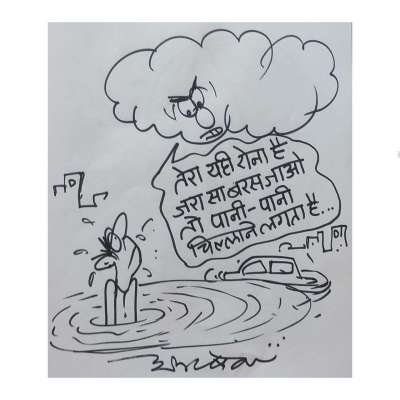 तेरा यही रोना है
जरा सा बरस जाओ
तो पानी-पानी
चिल्लाने लगता है...